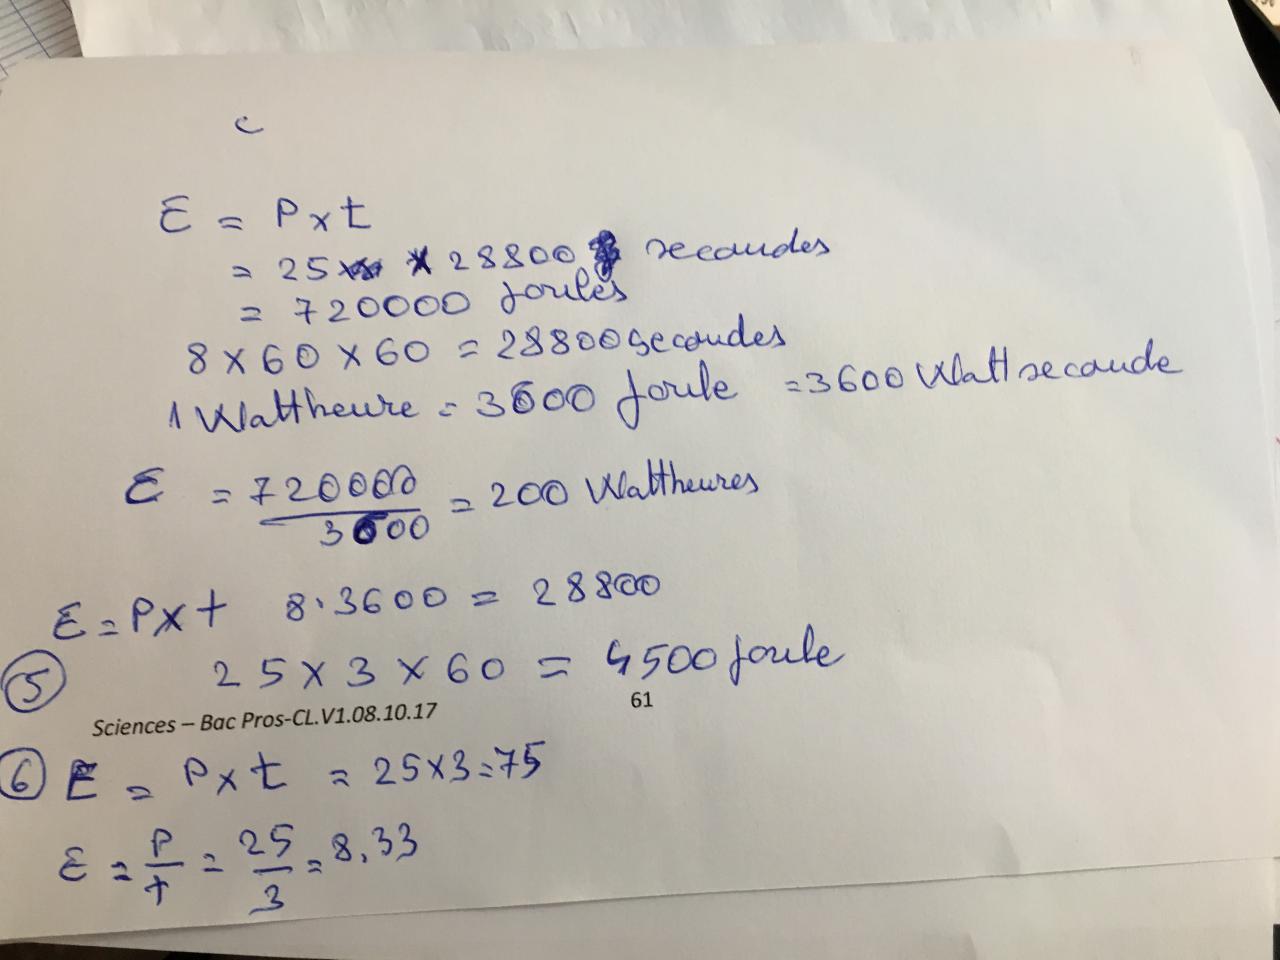 c
E = P x t
= 25 x 28800 secoudes
= 720000 Joules
8 x 60 x 60 = 28800 secoudes
1 Wattheure = 3600 Joule = 3600 Wattsecoude
E = 720000 / 3600 = 200 Wattheures
E = P x t 8.3600 = 28800
5 25 x 3 x 60 = 4500 Joule
Sciences – Bac Pros-CL.V1.08.10.17 61
6 E = P x t = 25 x 3 = 75
E = P / t = 25 / 3 = 8,33